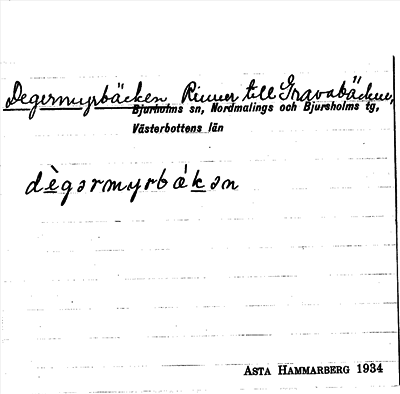 Degermyrbäcken Rinner till Gravabäcken,
Bjurholms sn, Nordmalings och Bjurholms tg,
Västerbottens län
dègərmyrbákən
ASTA HAMMARBERG 1934